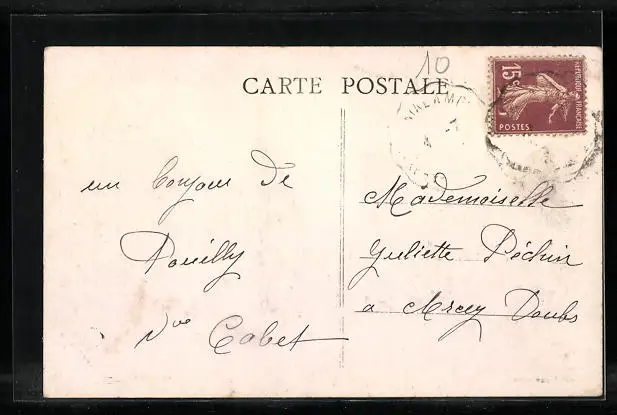 10
CARTE POSTALE
15c
REPUBLIQUE FRANÇAISE
POSTES
un bonjour de
Pouilly
Vve Cabet
Mademoiselle
Juliette Péchin
a Arcey Doubs